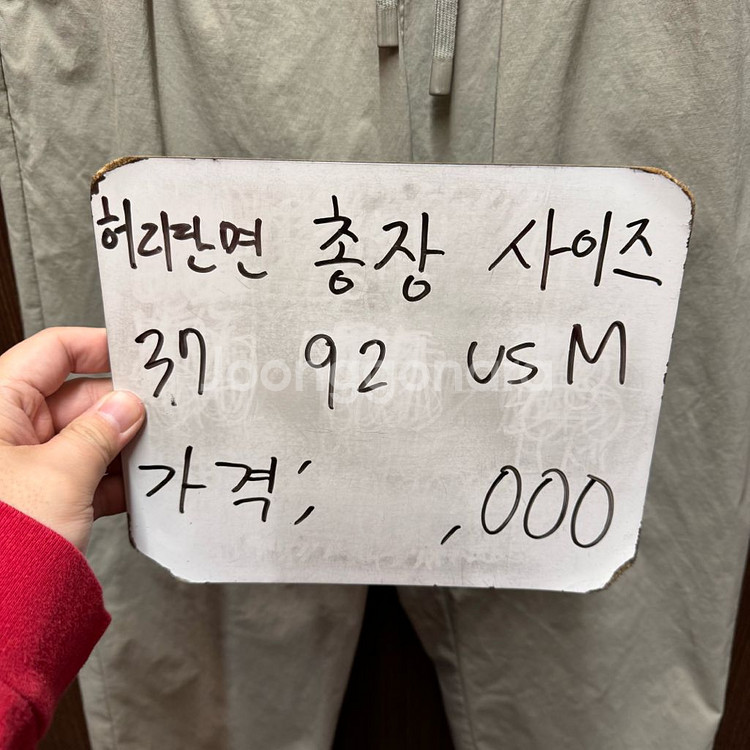 허리단면 총장 사이즈
37 92 US M
가격; ,000
Joonggonara